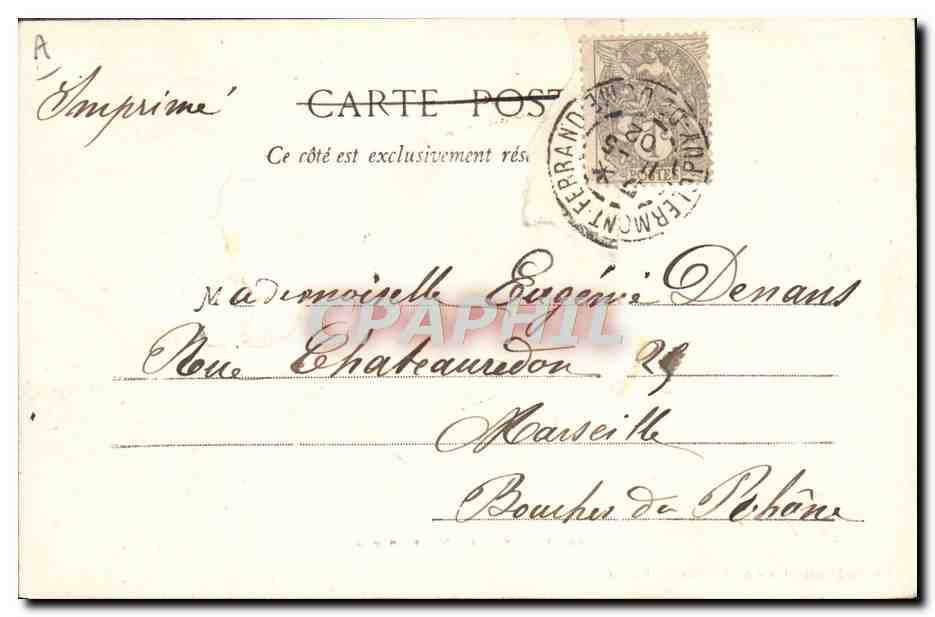 A
Imprimé
CARTE POST
Ce côté est exclusivement rés
CLERMONT-FERRAND PUY-DE-DOME
02
POSTES
Mademoiselle Eugénie Denans
CPAPHIL
Rue Chateauredon 25
Marseille
Bouches du Rhône